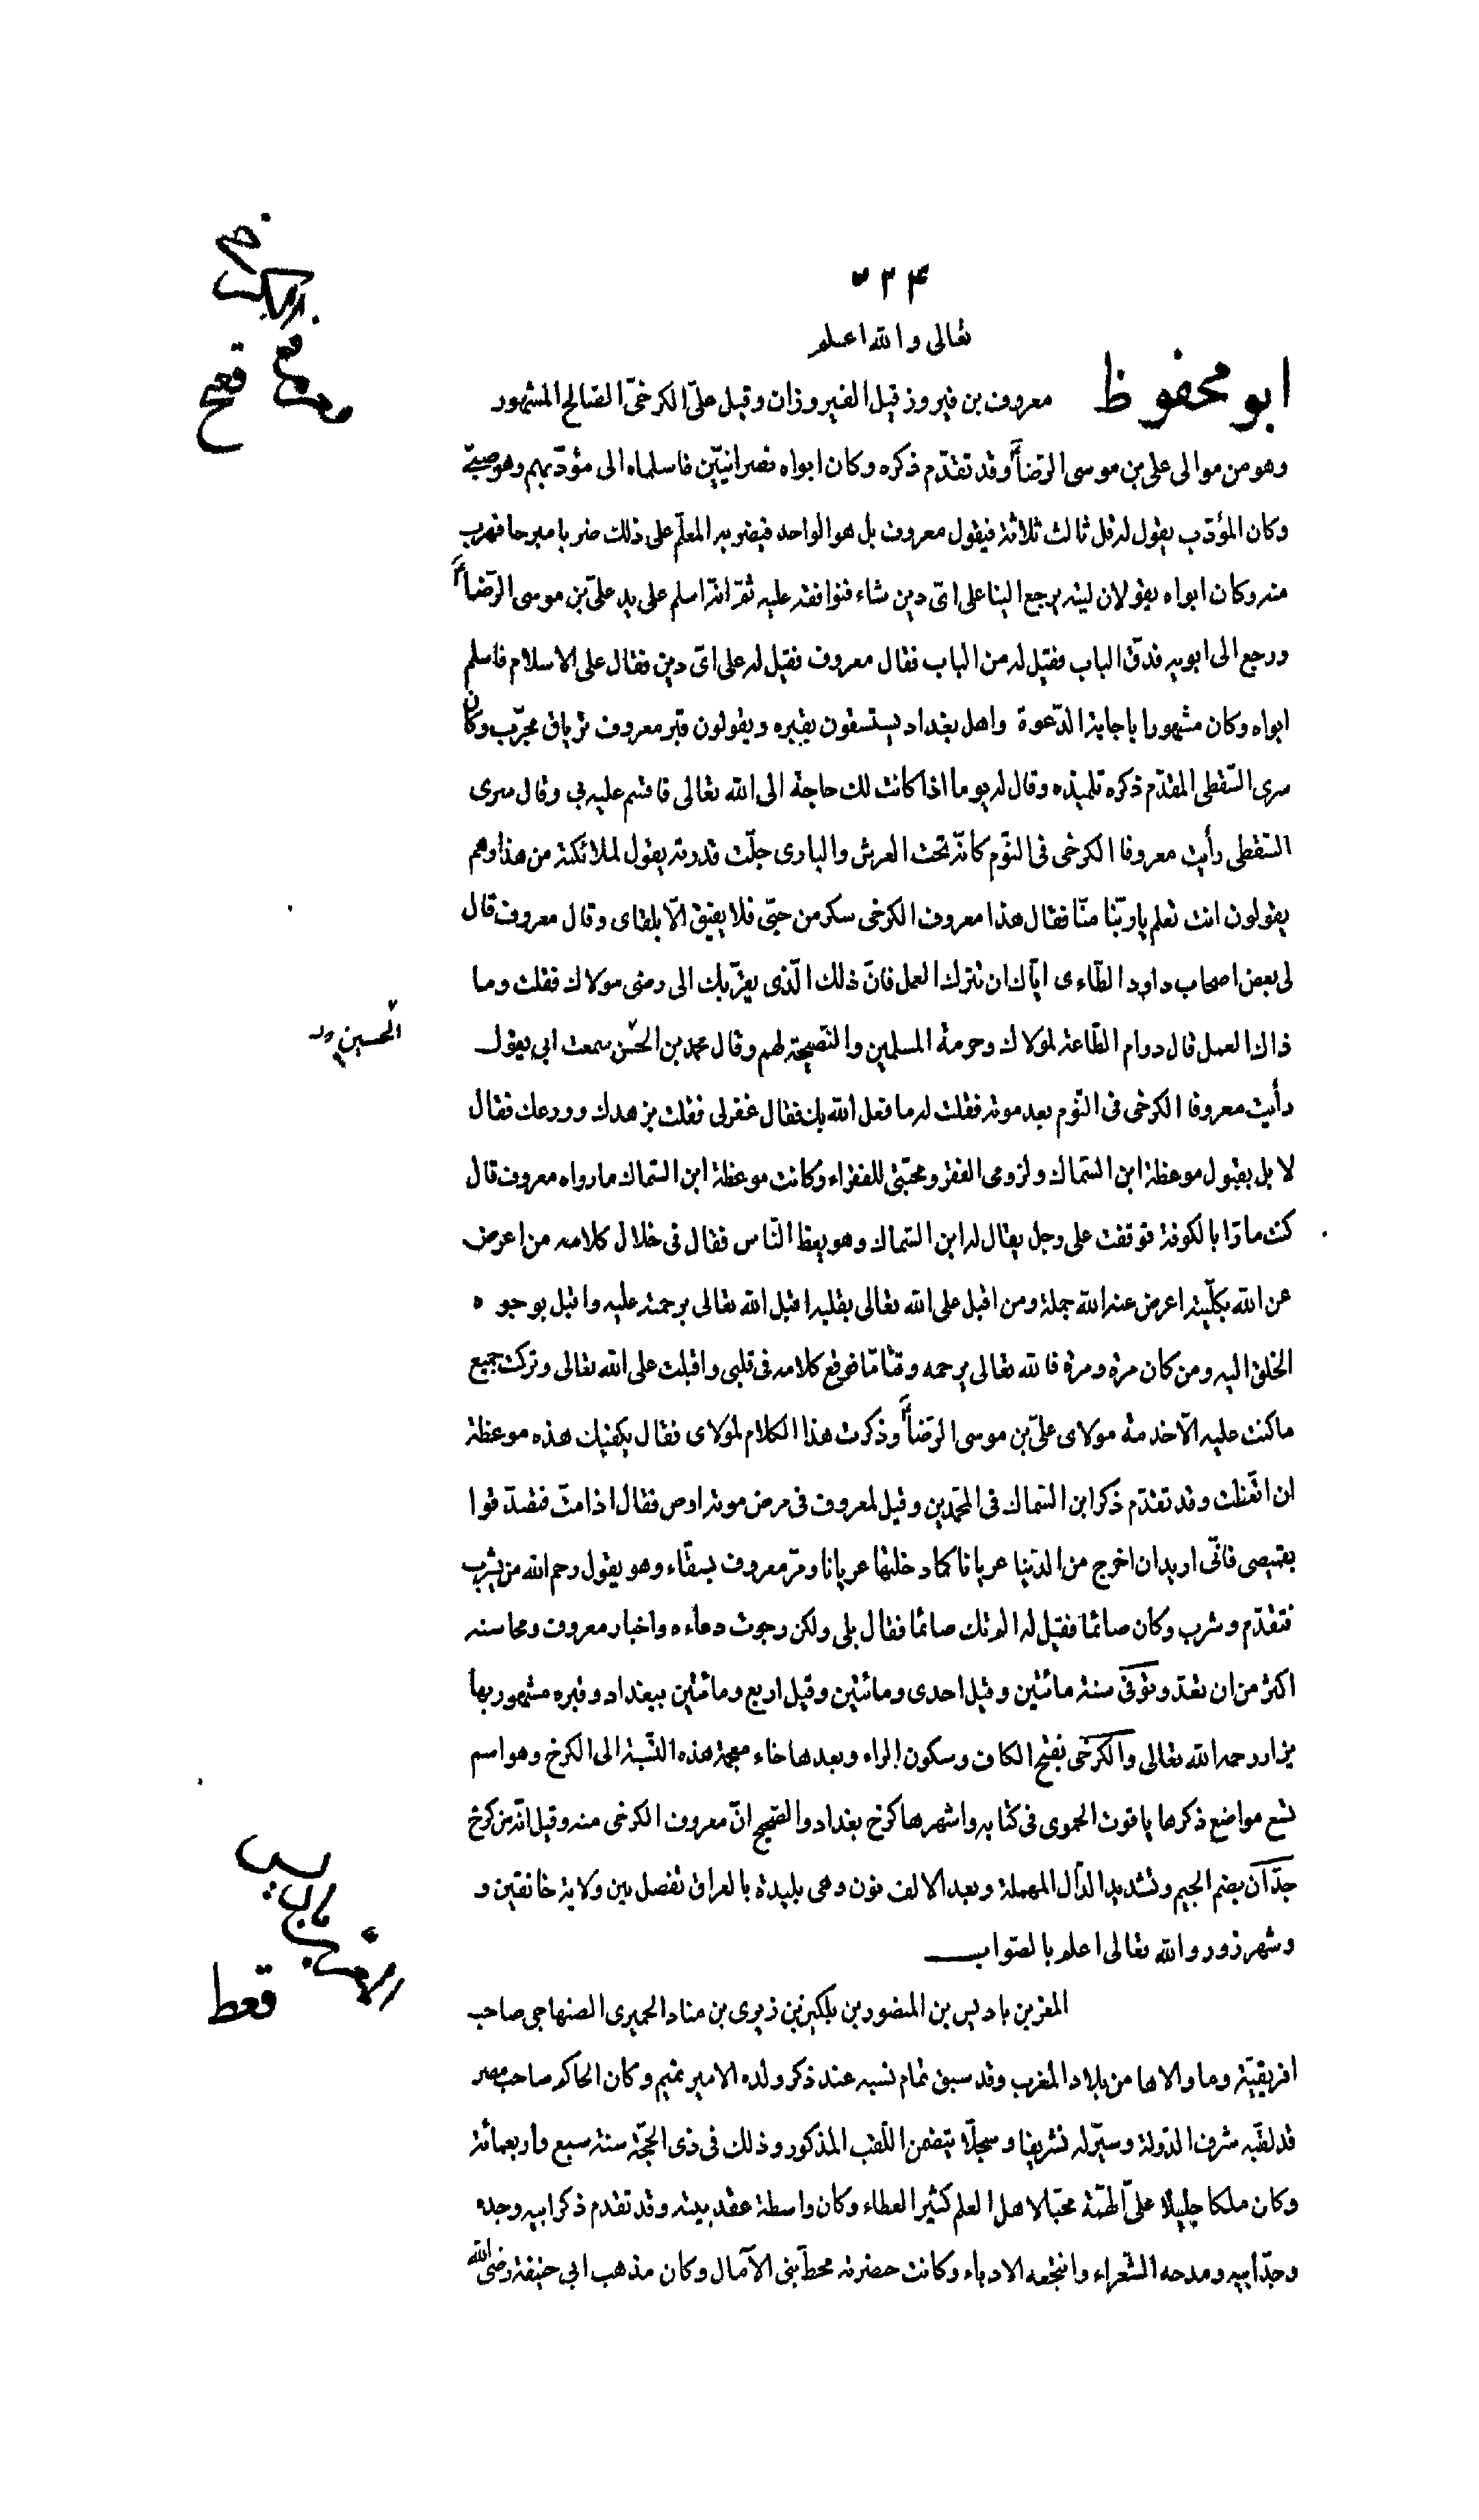 ٥٢٤
تعالى والله اعلم
ابو محفوظ معروف بن فيروز قيل الفيروزان وقيل علىّ الكرخىّ الصّالح المشهور
وهو من موالى على بن موسى الرّضا وقد تقدّم ذكره وكان ابواه نصرانيّين فاسلماه الى مؤدّبهم وهو صبىّ
وكان المؤدّب يقول له قل ثالث ثلاثة فيقول معروف بل هو الواحد فيضربه المعلّم على ذلك ضربا مبرحا فهرب
منه وكان ابواه يقولان ليته يرجع الينا على اىّ دين شاء فنوافقه عليه ثمّ انّه اسلم على يد علىّ بن موسى الرّضا
ورجع الى ابويه فدقّ الباب فقيل له من الباب فقال معروف فقيل له على اىّ دين فقال على الاسلام فاسلم
ابواه وكان مشهورا باجابة الدّعوة واهل بغداد يستسقون بقبره ويقولون قبر معروف ترياق مجرّب وكان
سرى السّقطى المقدّم ذكره تلميذه وقال له يوما اذا كانت لك حاجة الى الله تعالى فاقسم عليه بى وقال سرى
السّقطى رأيت معروفا الكرخى فى النّوم كانّه تحت العرش والبارى جلّت قدرته يقول لملائكته من هذا وهم
يقولون انت تعلم يا ربّنا منّا فقال هذا معروف الكرخى سكر من حبّى فلا يفيق الّا بلقاى وقال معروف قال
لى بعض اصحاب داود الطّاءى ايّاك ان تترك العمل فانّ ذلك الّذى يقرّبك الى رضى مولاك فقلت وما
ذاك العمل قال دوام الطّاعة لمولاك وحرمة المسلمين والنّصيحة لهم وقال محمد بن الحسن سمعت ابى يقول
الحسين
رأيت معروفا الكرخى فى النّوم بعد موته فقلت له ما فعل الله بك فقال غفر لى فقلت بزهدك وورعك فقال
لا بل بقبول موعظة ابن السّماك ولزومى الفقر ومحبّتى للفقراء وكانت موعظة ابن السّماك ما رواه معروف قال
كنت مارّا بالكوفة فوقفت على رجل يقال له ابن السّماك وهو يعظ النّاس فقال فى خلال كلامه من اعرض
عن الله بكلّيته اعرض عنه الله جملة ومن اقبل على الله تعالى بقلبه اقبل الله تعالى برحمته عليه واقبل بوجوه
الخلق اليه ومن كان مرة ومرة فالله تعالى يرحمه وقتا مّا فوقع كلامه فى قلبى واقبلت على الله تعالى وتركت جميع
ما كنت عليه الّا خدمة مولاى علىّ بن موسى الرّضا وذكرت هذا الكلام لمولاى فقال يكفيك هذه موعظة
ان اتّعظت وقد تقدّم ذكر ابن السّماك فى المحمّدين وقيل لمعروف فى مرض موته اوص فقال اذا متّ فتصدّقوا
بقميصى فانّى اريد ان اخرج من الدّنيا عريانا كما دخلتها عريانا ومرّ معروف بسقّاء وهو يقول رحم الله من يشرب
فتقدّم وشرب وكان صائما فقيل له الم تك صائما فقال بلى ولكن رجوت دعاءه واخبار معروف ومحاسنه
اكثر من ان تعدّ وتوفّى سنة مائتين وقيل احدى ومائتين وقيل اربع ومائتين ببغداد وقبره مشهور بها
يزار رحمه الله تعالى والكرخى بفتح الكاف وسكون الراء وبعدها خاء معجمة هذه النّسبة الى الكرخ وهو اسم
تسع مواضع ذكرها ياقوت الحموى فى كتابه واشهرها كرخ بغداد والصّحيح انّ معروف الكرخى منه وقيل انّه من كرخ
جدّان بضم الجيم وتشديد الدّال المهملة وبعد الالف نون وهى بليدة بالعراق تفصل بين ولاية خانقين و
وشهرزور والله تعالى اعلم بالصّواب
المعز بن باديس بن المنصور بن بلكين بن زيرى بن مناد الحميرى الصنهاجى صاحب
افريقيّة وما والاها من بلاد المغرب وقد سبق تمام نسبه عند ذكر ولده الامير تميم وكان الحاكم صاحب مصر
قد لقّبه شرف الدّولة وسيّر له تشريفا وسجلّا يتضمن اللّقب المذكور وذلك فى ذى الحجّة سنة سبع واربعمائة
وكان ملكا جليلا علىّ الهمّة محبّا لاهل العلم كثير العطاء وكان واسطة عقد بيته وقد تقدم ذكر ابيه وجده
وجدّ ابيه ومدحه الشّعراء وانتجعه الادباء وكانت حضرته محطّ بنى الآمال وكان مذهب ابى حنيفة رضى الله